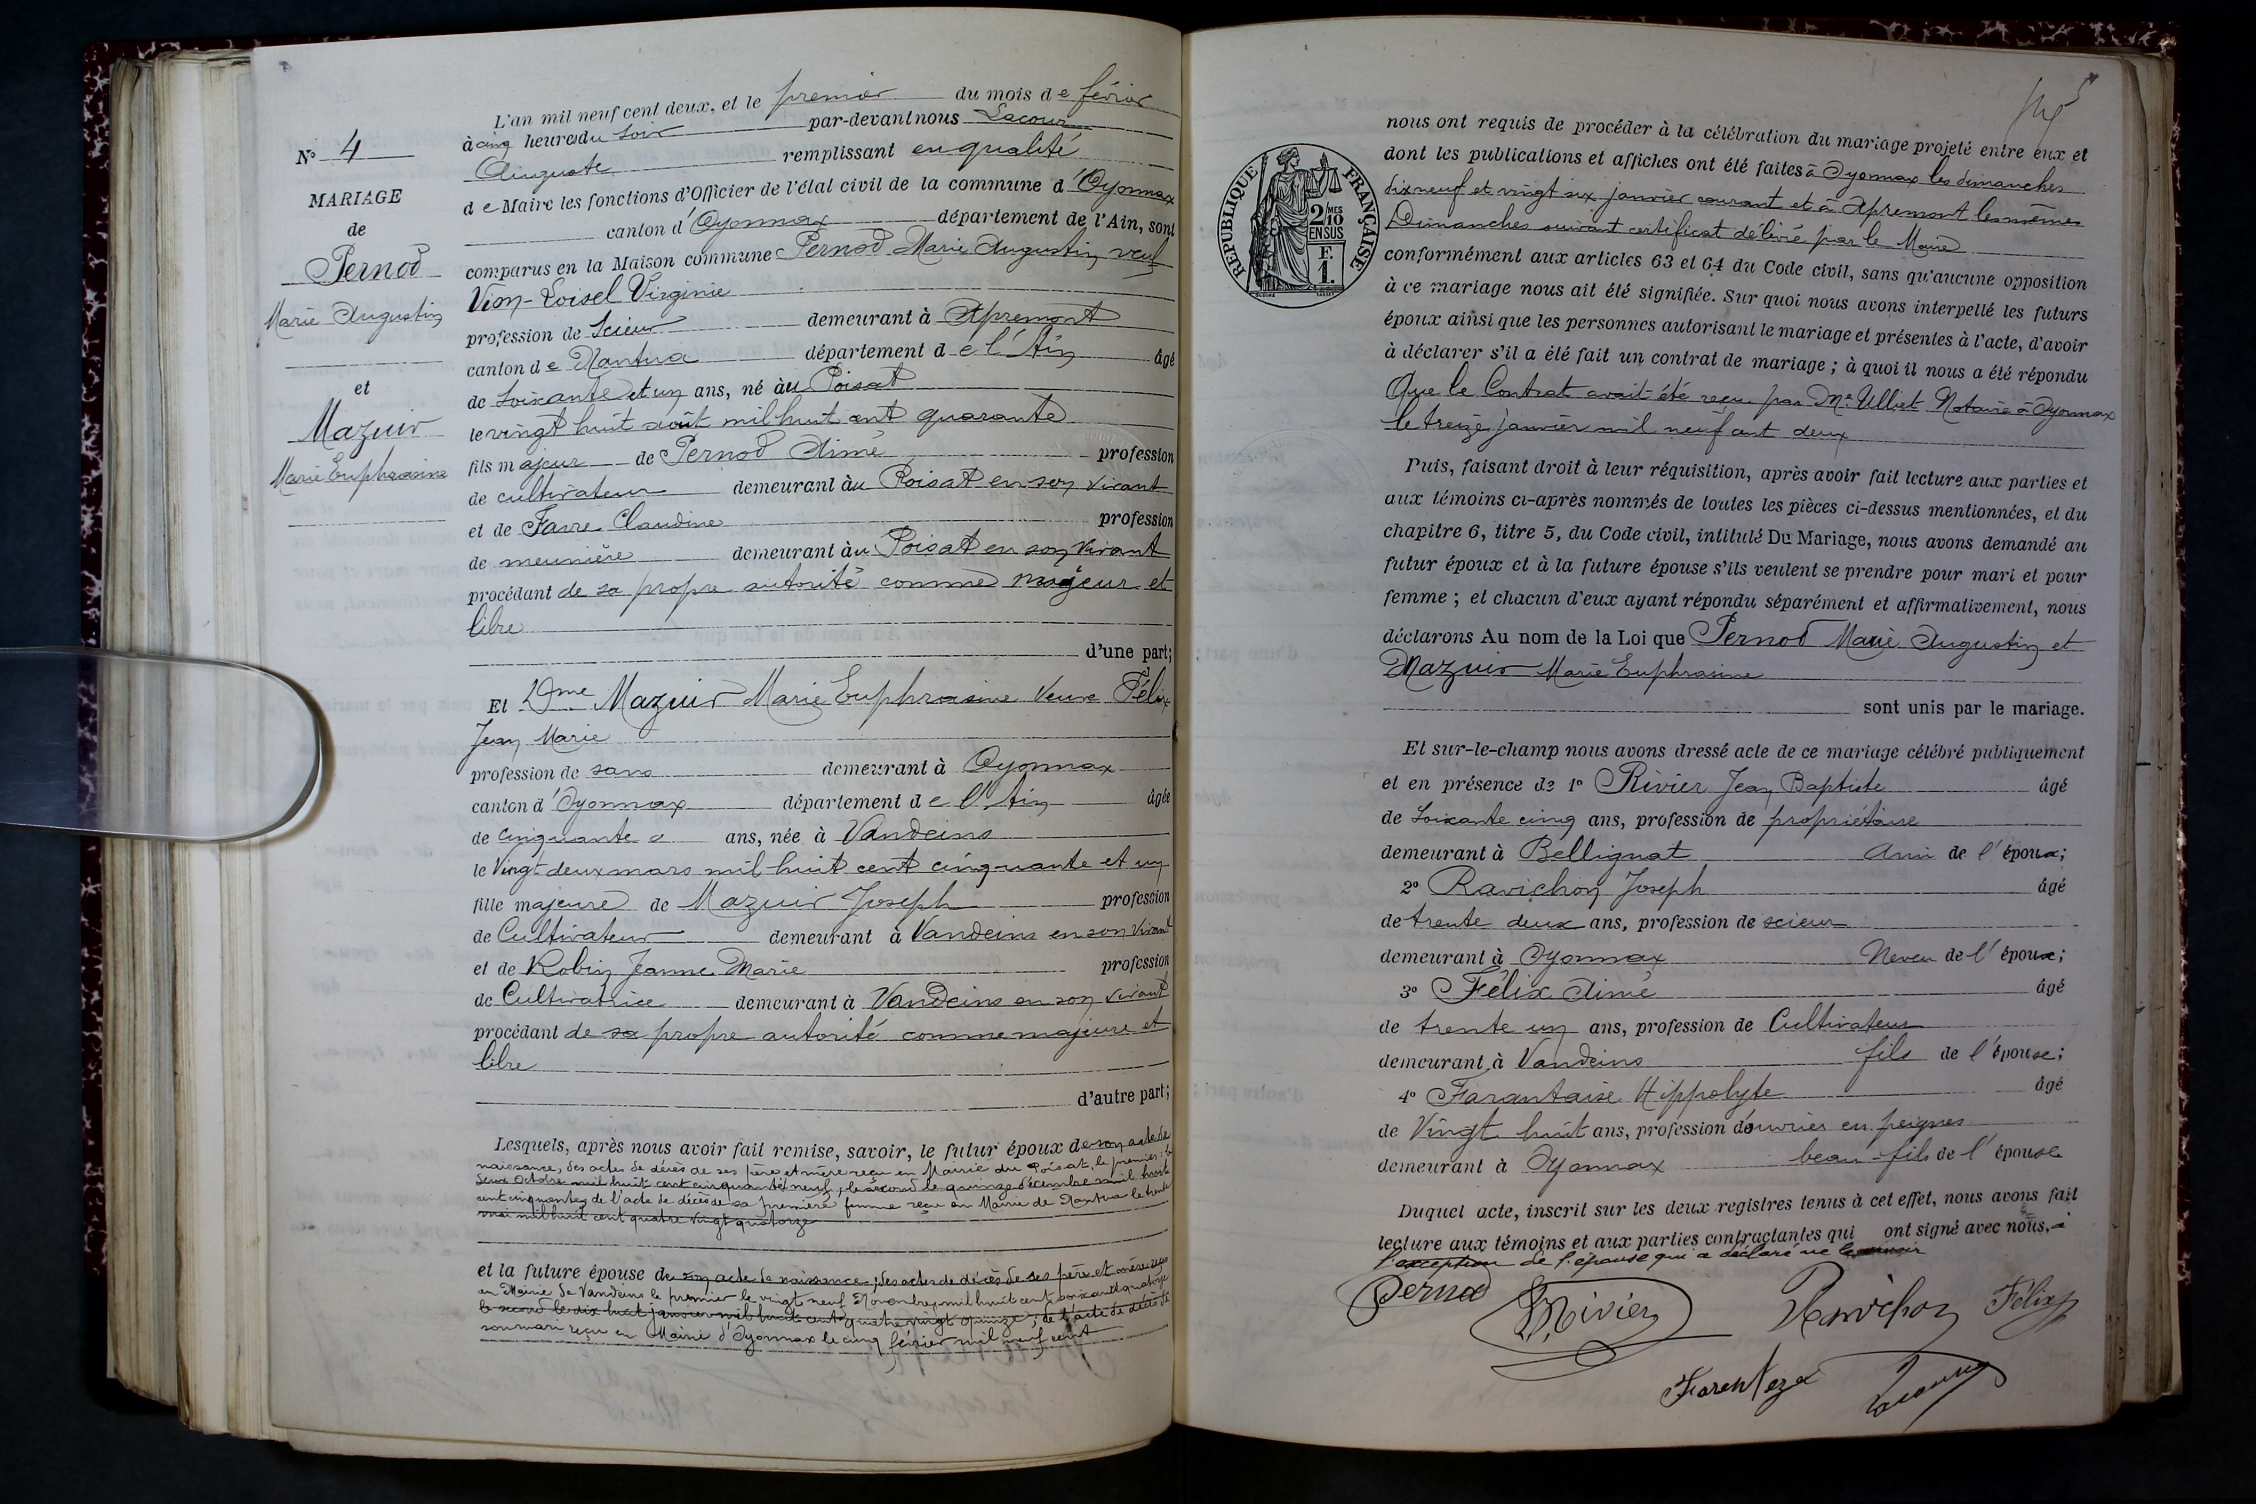 N° 4
MARIAGE
de
Pernod
Marie Augustin
et
Mazuir
Marie Euphrasine
L'an mil neuf cent deux, et le premier du mois de février
à cinq heures du soir par-devant nous Lacour
Auguste remplissant en qualité
de Maire les fonctions d'Officier de l'état civil de la commune d'Oyonnax
canton d'Oyonnax département de l'Ain, sont
comparus en la Maison commune Pernod Marie Augustin veuf
Vion-Loisel Virginie
profession de Scieur demeurant à Apremont
canton de Nantua département de l'Ain âgé
de Soixante et un ans, né àu Poisat
le vingt huit août mil huit cent quarante
fils majeur de Pernod Aimé profession
de cultivateur demeurant àu Poisat en son vivant
et de Favre Claudine profession
de meunière demeurant àu Poisat en son vivant
procédant de sa propre autorité comme majeur et
libre
d'une part;
Et Dme Mazuir Marie Euphrasine Veuve Félix
Jean Marie
profession de sans demeurant à Oyonnax
canton d'Oyonnax département de l'Ain âgée
de cinquante ans, née à Vandeins
le Vingt deux mars mil huit cent cinquante et un
fille majeure de Mazuir Joseph profession
de Cultivateur demeurant à Vandeins en son vivant
et de Robin Jeanne Marie profession
de Cultivatrice demeurant à Vandeins en son vivant
procédant de sa propre autorité comme majeure et
libre
d'autre part;
Lesquels, après nous avoir fait remise, savoir, le futur époux de son acte de
naissance, des actes de décès de ses père et mère reçu en Mairie du Poisat, le premier : le
Octobre mil huit cent cinquante neuf, le second le quinze décembre mil huit
cent cinquante, de l'acte de décès de sa première femme reçu en Mairie de Nantua le trente
mai mil huit cent quatre vingt quatorze
et la future épouse de son acte de naissance ; des actes de décès de ses père et mère reçu
en Mairie de Vandeins le premier le vingt neuf Novembre mil huit cent soixante quatorze
le second le dix huit janvier mil huit cent quatre vingt quinze ; de l'acte de décès de
son mari reçu en Mairie d'Oyonnax le cinq février mil neuf cent
nous ont requis de procéder à la célébration du mariage projeté entre eux et
dont les publications et affiches ont été faites à Oyonnax les dimanches
dix neuf et vingt six janvier courant et à Apremont les mêmes
Dimanches suivant certificat délivré par le Maire
conformément aux articles 63 et 64 du Code civil, sans qu'aucune opposition
à ce mariage nous ait été signifiée. Sur quoi nous avons interpellé les futurs
époux ainsi que les personnes autorisant le mariage et présentes à l'acte, d'avoir
à déclarer s'il a été fait un contrat de mariage ; à quoi il nous a été répondu
Que le Contrat avait été reçu par Me Ulliet Notaire à Oyonnax
le treize janvier mil neuf cent deux
Puis, faisant droit à leur réquisition, après avoir fait lecture aux parties et
aux témoins ci-après nommés de toutes les pièces ci-dessus mentionnées, et du
chapitre 6, titre 5, du Code civil, intitulé Du Mariage, nous avons demandé au
futur époux et à la future épouse s'ils veulent se prendre pour mari et pour
femme ; et chacun d'eux ayant répondu séparément et affirmativement, nous
déclarons Au nom de la Loi que Pernod Marie Augustin et
Mazuir Marie Euphrasine
sont unis par le mariage.
Et sur-le-champ nous avons dressé acte de ce mariage célébré publiquement
et en présence de 1° Rivier Jean Baptiste âgé
de Soixante cinq ans, profession de propriétaire
demeurant à Bellignat Ami de l'époux;
2° Ravichon Joseph âgé
de trente deux ans, profession de scieur
demeurant à Oyonnax Neveu de l'époux;
3° Félix Aimé âgé
de trente un ans, profession de Cultivateur
demeurant à Vandeins fils de l'épouse;
4° Farantaise Hippolyte âgé
de Vingt huit ans, profession d'ouvrier en peignes
demeurant à Oyonnax beau-fils de l'épouse
Duquel acte, inscrit sur les deux registres tenus à cet effet, nous avons fait
lecture aux témoins et aux parties contractantes qui ont signé avec nous, à
l'exception de l'épouse qui a déclaré ne le savoir
Pernod Rivier Ravichon Félix
Lacour
RÉPUBLIQUE FRANÇAISE
2/10 MES
EN SUS
F.
1.